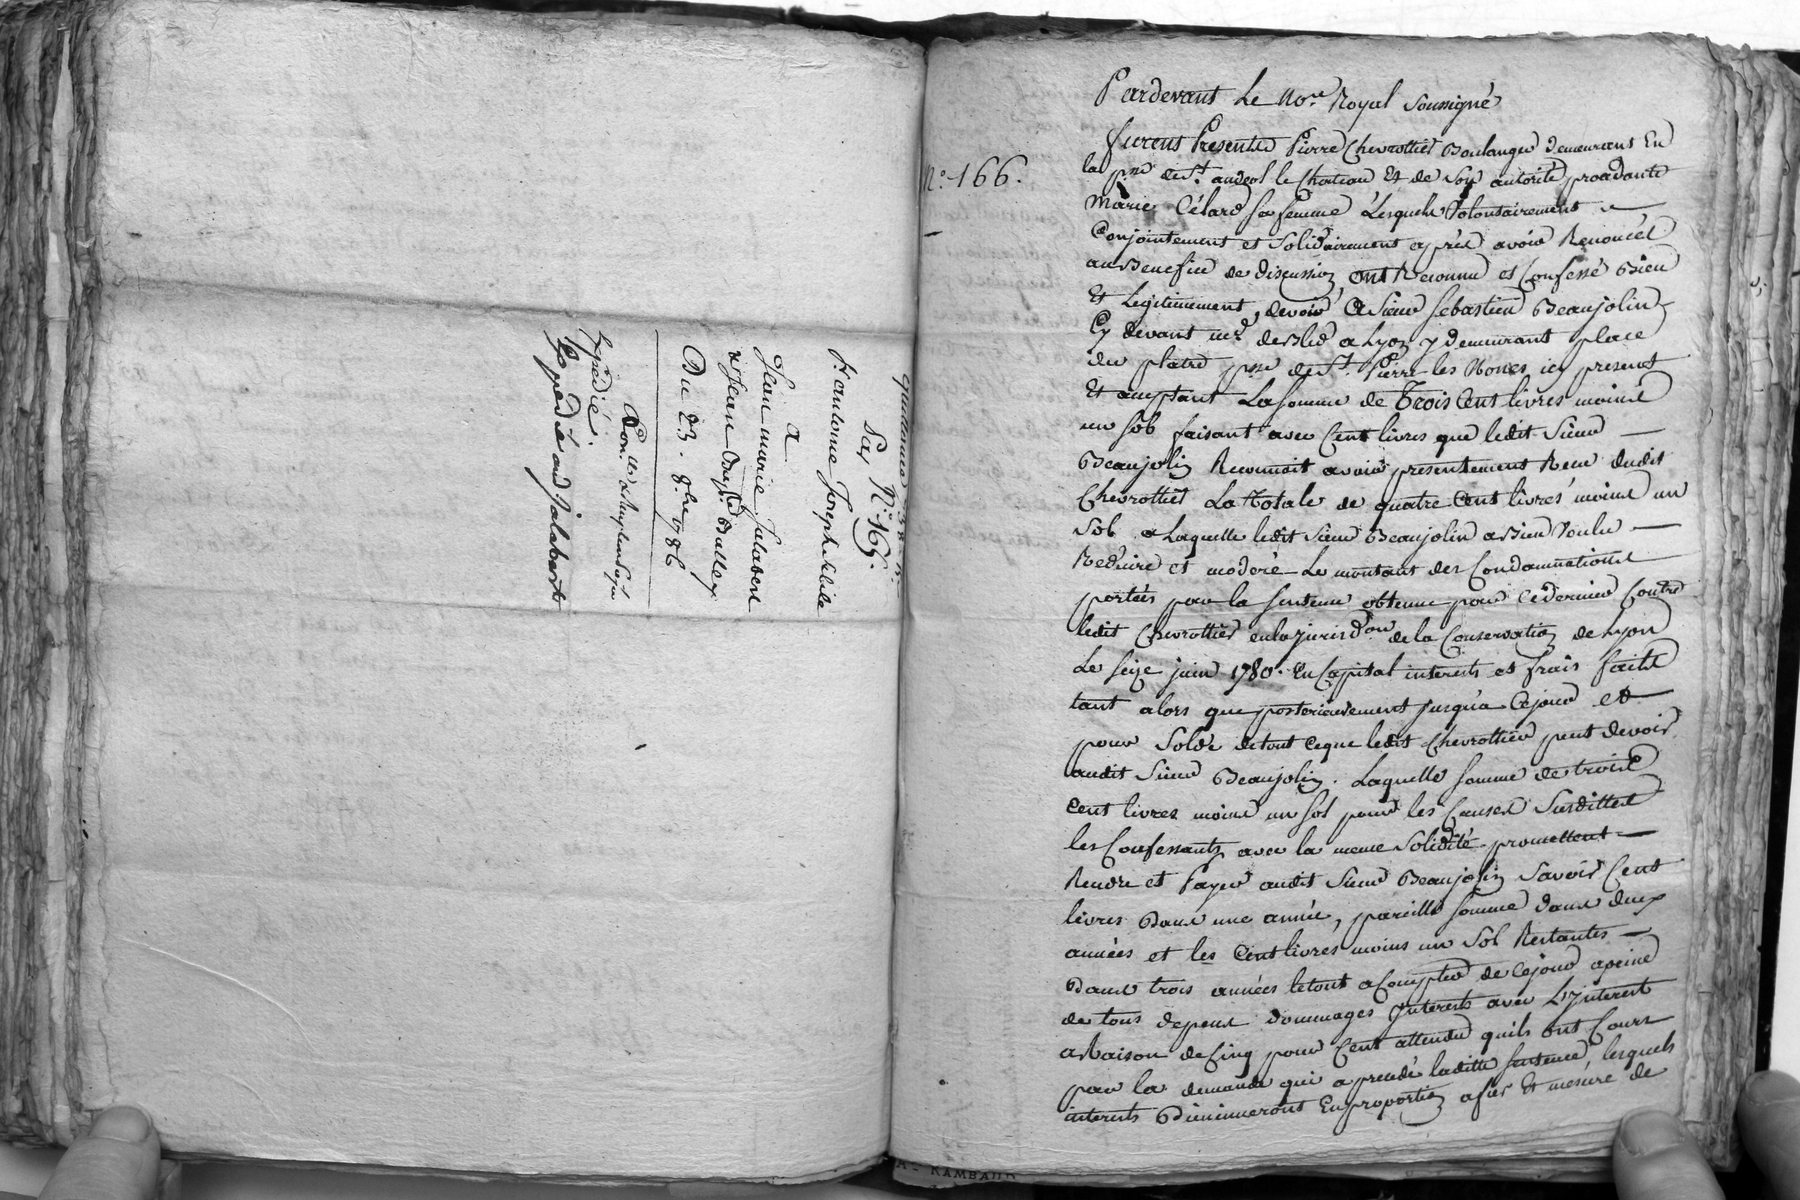 quittance 58 #
Par N.° 165.
f.s antoine Joseph
a
Jean marie Jalabert
& Jean Bap.te Balley
Du 23. 8bre 1786
Expédié.
Expedié aud Jalabert
N.° 166.
Pardevant Le No.re Royal Soussigné
furent Presents Pierre Chevrottier Boulanger demeurant En
la p.sse de St. andeol le Chateau Et de Son autorité procedante
Marie Célard sa femme Lesquels Volontairement
Conjointement et Solidairement après avoir Renoncé
au Benefice de discussion ont Reconnu et Confessé Bien
Et Legitimement devoir a Sieur Sebastien Beaujolin
Cy devant m.d de Bled a Lyon y demeurant place
du platre p.sse de St. Pierre les Nones icy present
Et acceptant La somme de Trois Cent livres moins
un sol faisant avec Cent livres que ledit Sieur
Beaujolin Reconnoit avoir presentement Reçu dudit
Chevrottier La Totale de quatre Cent livres moins un
Sol a Laquelle ledit Sieur Beaujolin a Bien Voulu
Reduire et moderé Le montant des Condamnations
portées par la sentence obtenue par Ce dernier Contre
ledit Chevrottier en la jurisd.on de la Conservation de Lyon
Le seize juin 1780. En Capital interets et frais faits
tant alors que posterieurement jusqu'a Cejour et
pour Solde de tout ce que ledit Chevrottier peut devoir
audit Sieur Beaujolin. Laquelle somme de trois
Cent livres moins un sol pour les Causes Susdittes
les Confessants avec la meme Solidité promettent
Rendre et Payer audit Sieur Beaujolin Savoir Cent
livres Dans une année, pareille somme dans deux
années et les Cent livres moins un Sol Restantes
Dans trois années le tout a Compter de Cejour a peine
de tous depens dommages Interets avec L'Interest
a Raison de Cinq pour Cent attendu quils ont Cours
par la demande qui a precedé laditte sentence, lesquels
interets Diminueront En proportion a fur Et mesure de